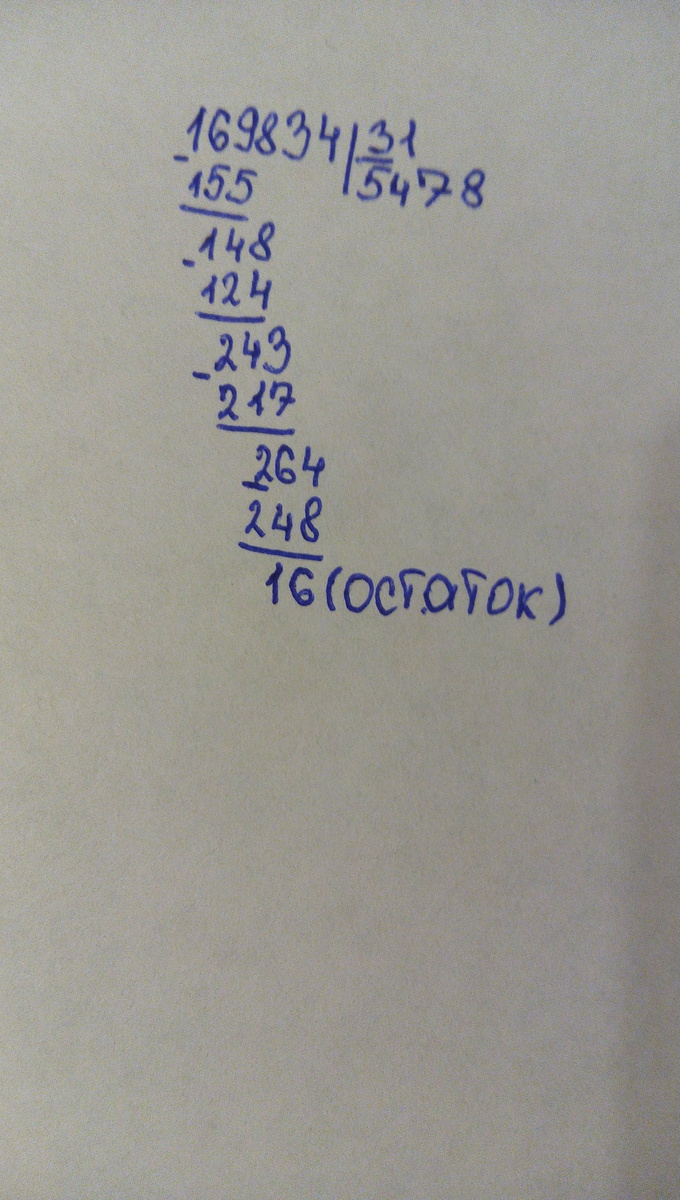 169834 31
155 5478
148
124
243
217
264
248
16 (остаток)